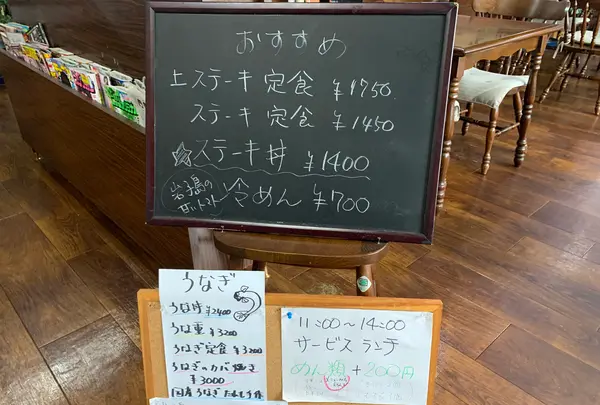 おすすめ
上ステーキ定食 ¥1750
ステーキ定食 ¥1450
☆ステーキ丼 ¥1400
岩子島の
甘いトマト
冷めん ¥700
うなぎ
うな丼 ¥2400
うな重 ¥3200
うなぎ定食 ¥3200
うなぎのカバ焼き
¥3000
国産うなぎ
11:00～14:00
サービスランチ
めん類 +200円